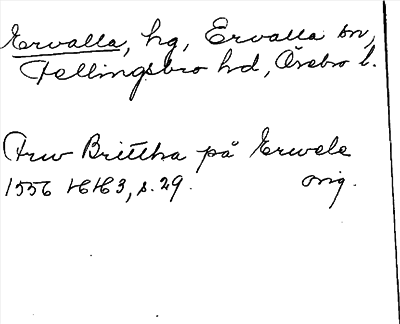 Ervalla, hg, Ervalla sn,
Fellingsbro hd, Örebro l.
Frw Brittha på Erwele
1556 HH3, s. 29. orig.